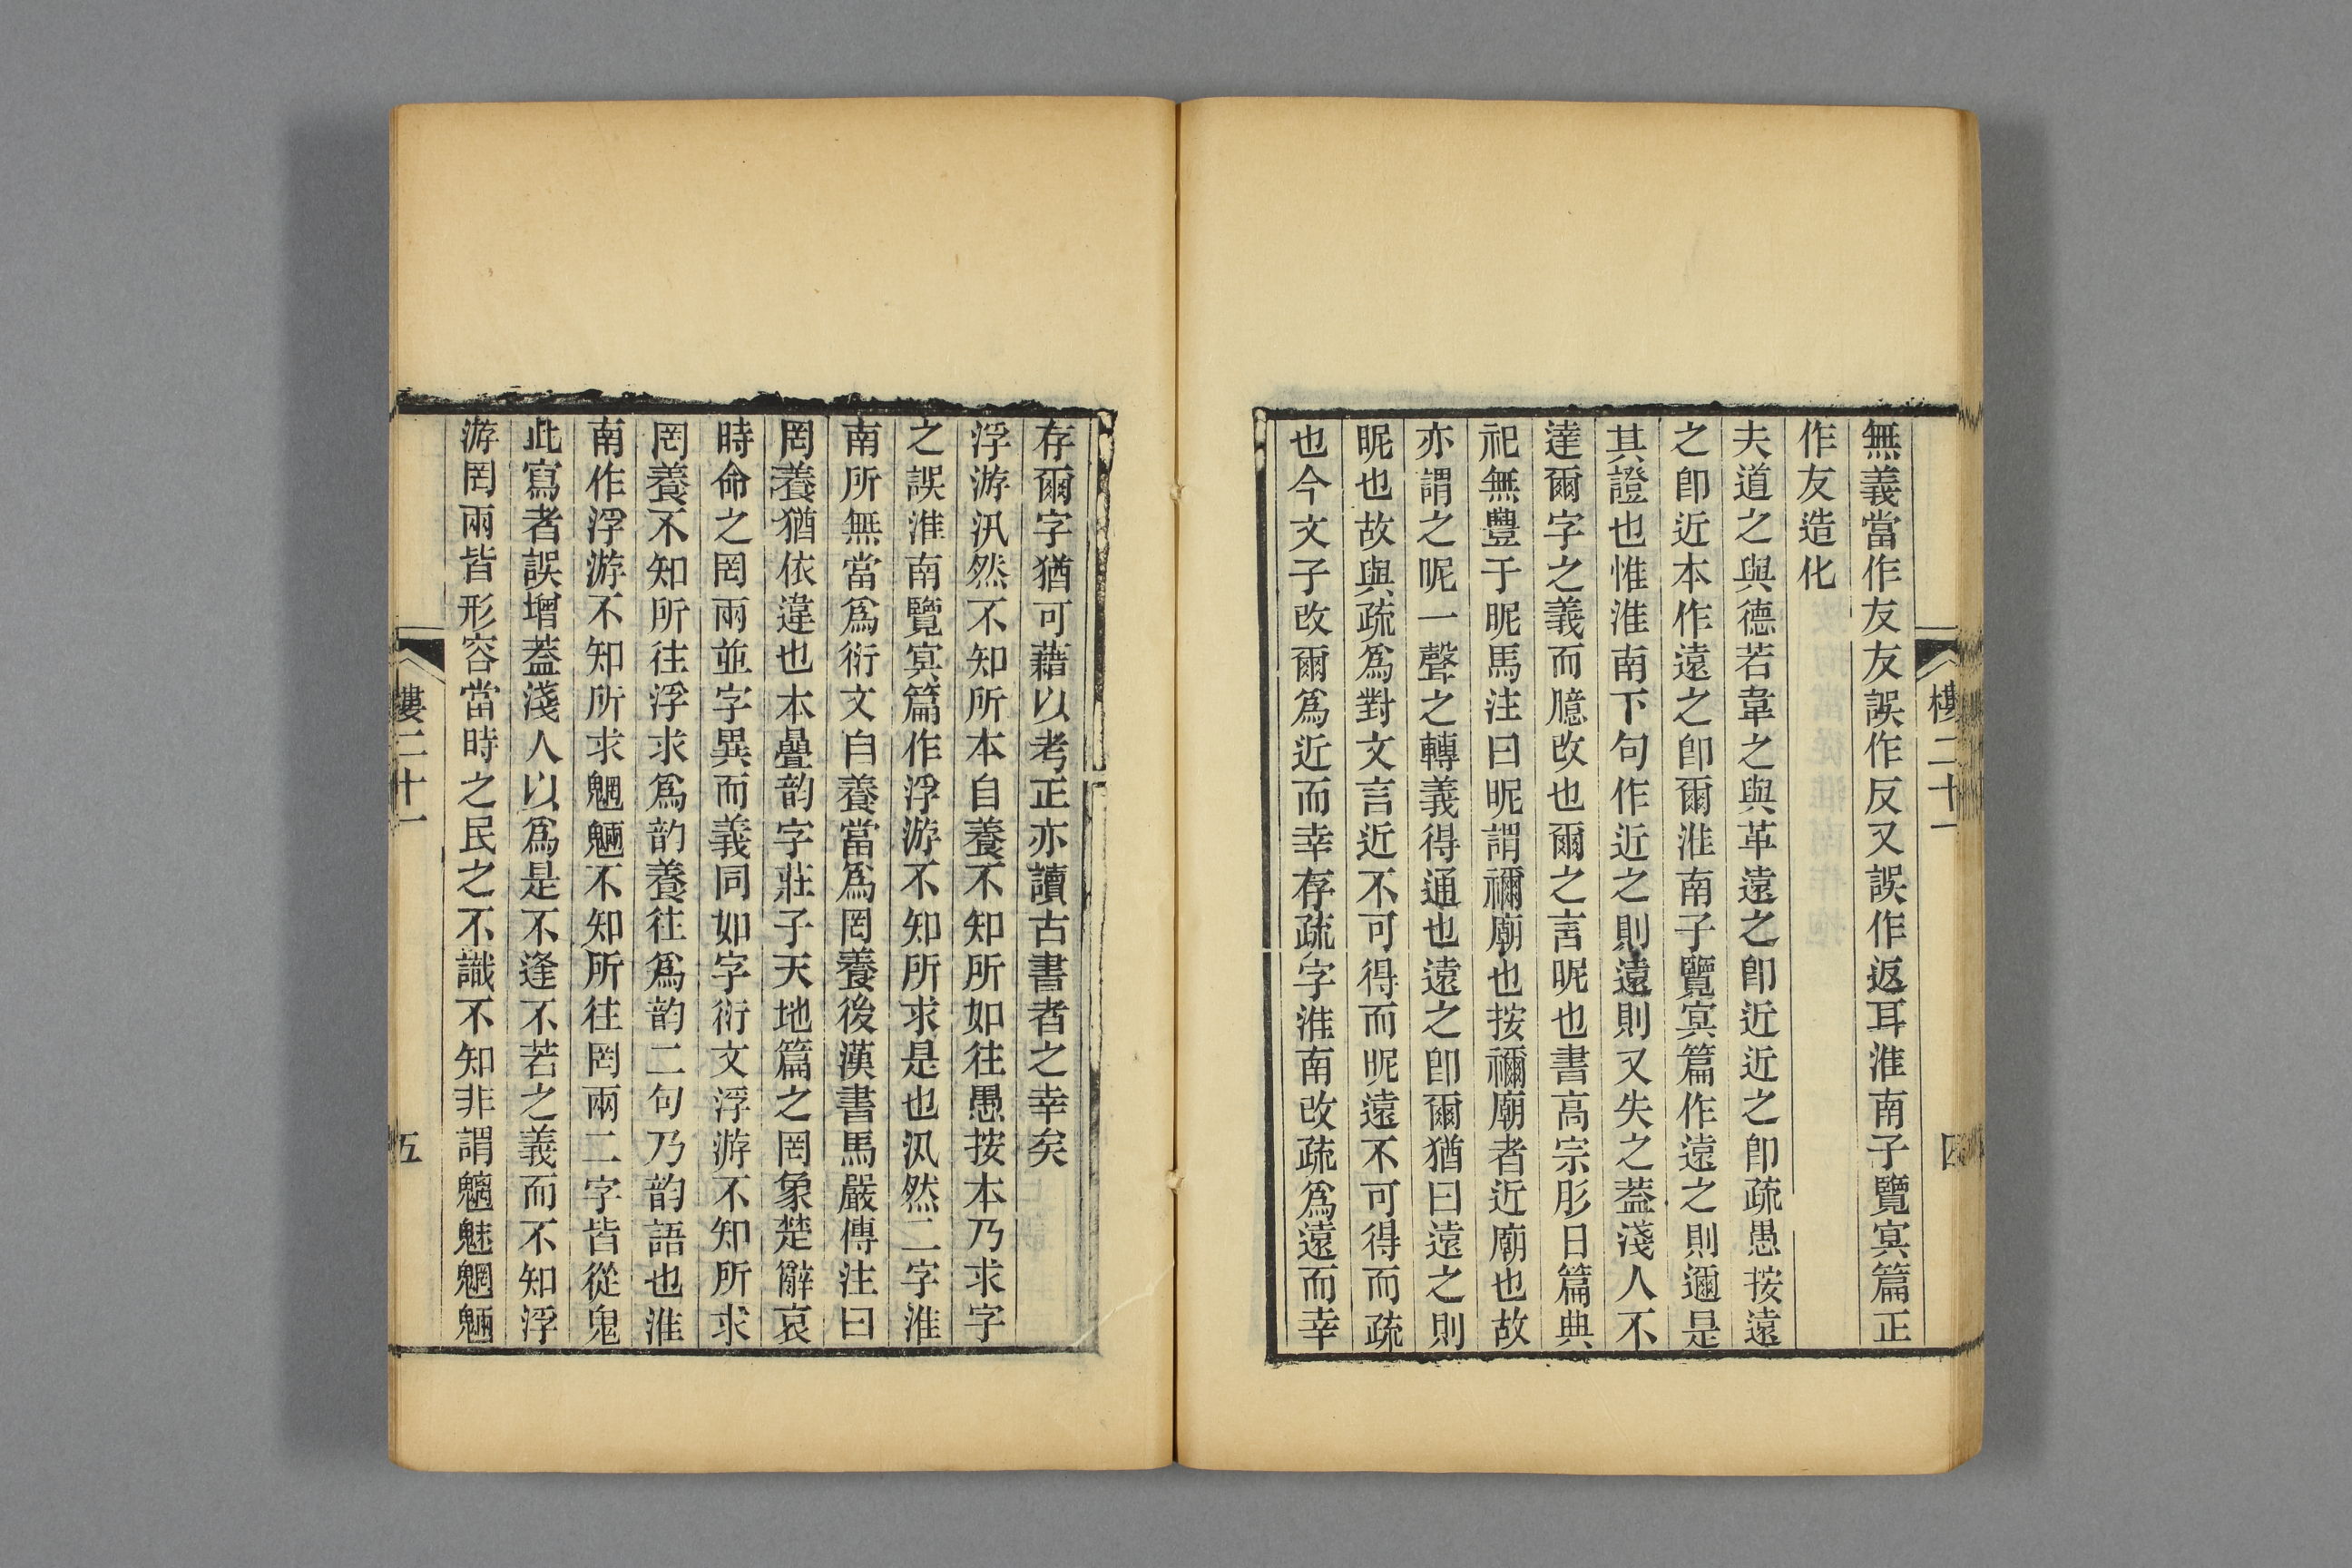 無義當作友友誤作反又誤作返耳淮南子覽冥篇正
作友造化
夫道之與德若韋之與革遠之卽近近之卽疏愚按遠
之卽近本作遠之卽爾淮南子覽冥篇作遠之則邇是
其證也惟淮南下句作近之則遠則又失之蓋淺人不
達爾字之義而臆改也爾之言昵也書高宗肜日篇典
祀無豐于昵馬注曰昵謂禰廟也按禰廟者近廟也故
亦謂之昵一聲之轉義得通也遠之卽爾猶曰遠之則
昵也故與疏爲對文言近不可得而昵遠不可得而疏
也今文子改爾爲近而幸存疏字淮南改疏爲遠而幸
樓二十一
四
存爾字猶可藉以考正亦讀古書者之幸矣
浮游汎然不知所本自養不知所如往愚按本乃求字
之誤淮南覽冥篇作浮游不知所求是也汎然二字淮
南所無當爲衍文自養當爲罔養後漢書馬嚴傳注曰
罔養猶依違也本疊韵字莊子天地篇之罔象楚辭哀
時命之罔兩並字異而義同如字衍文浮游不知所求
罔養不知所往浮求爲韵養往爲韵二句乃韵語也淮
南作浮游不知所求魍魎不知所往罔兩二字皆從鬼
此寫者誤增蓋淺人以爲是不逢不若之義而不知浮
游罔兩皆形容當時之民之不識不知非謂魑魅魍魎
樓二十一
五